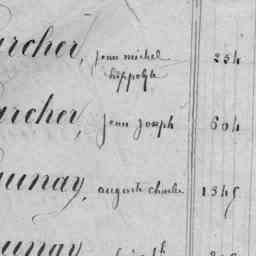 archer, jean michel 254
hippolyte
archer, jean joseph 604
aunay, auguste charles 1345
aunay